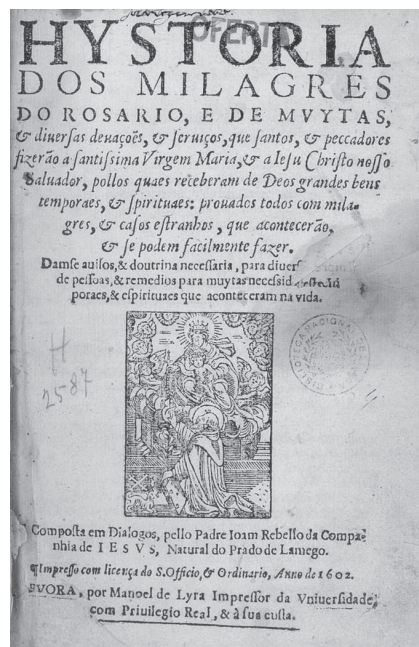 OFERTA
HYSTORIA
DOS MILAGRES
DO ROSARIO, E DE MVYTAS,
& diuersas deuações, & seruiços, que santos, & peccadores
fizerão a santissima Virgem Maria, & a Iesu Christo nosso
Saluador, pollos quaes receberam de Deos grandes bens
temporaes, & spirituaes: prouados todos com mila-
gres, & casos estranhos, que acontecerão,
& se podem facilmente fazer.
Damse auisos, & doutrina necessaria, para
de pessoas, & remedios para muytas
poraes, & espirituaes que aconteceram na vida.
H
2587
BIBLIOTECA NACIONAL
Composta em Dialogos, pello Padre Ioam Rebello da Compa-
nhia de IESVS, Natural do Prado de Lamego.
¶ Impresso com licença do S. Officio, & Ordinario, Anno de 1602.
EVORA, por Manoel de Lyra Impressor da Vniuersidade,
com Priuilegio Real, & à sua custa.